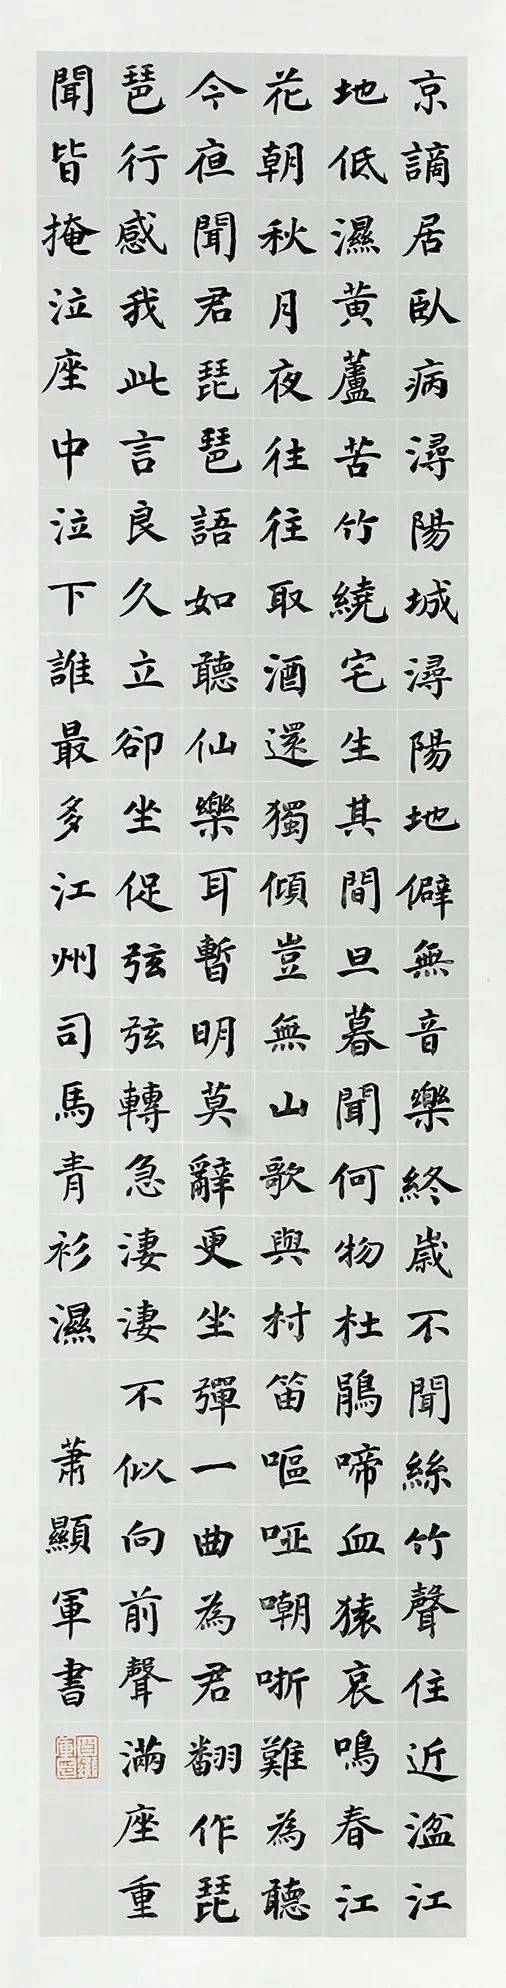 京謫居臥病潯陽城潯陽地僻無音樂終歲不聞絲竹聲住近湓江
地低濕黃蘆苦竹繞宅生其間旦暮聞何物杜鵑啼血猿哀鳴春江
花朝秋月夜往往取酒還獨傾豈無山歌與村笛嘔啞嘲哳難為聽
今夜聞君琵琶語如聽仙樂耳暫明莫辭更坐彈一曲為君翻作琵
琶行感我此言良久立卻坐促弦弦轉急淒淒不似向前聲滿座重
聞皆掩泣座中泣下誰最多江州司馬青衫濕 蕭顯軍書